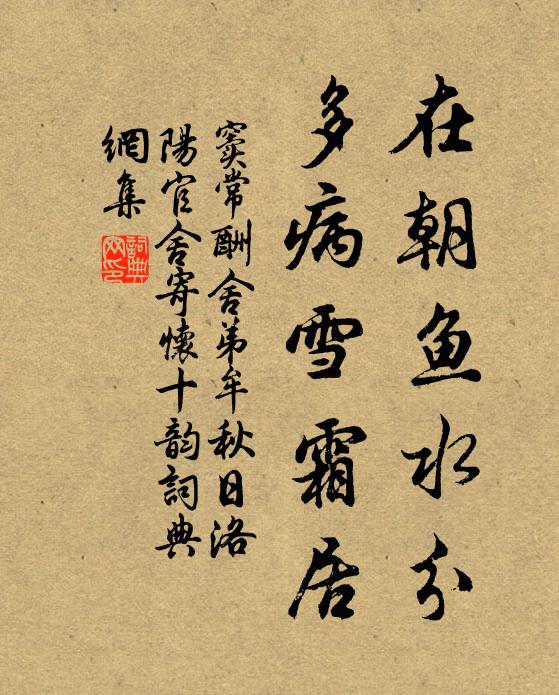 在朝鱼水分
多病雪霜居
窦常酬舍弟牟秋日洛
阳官舍寄怀十韵词典
网集
词典网印